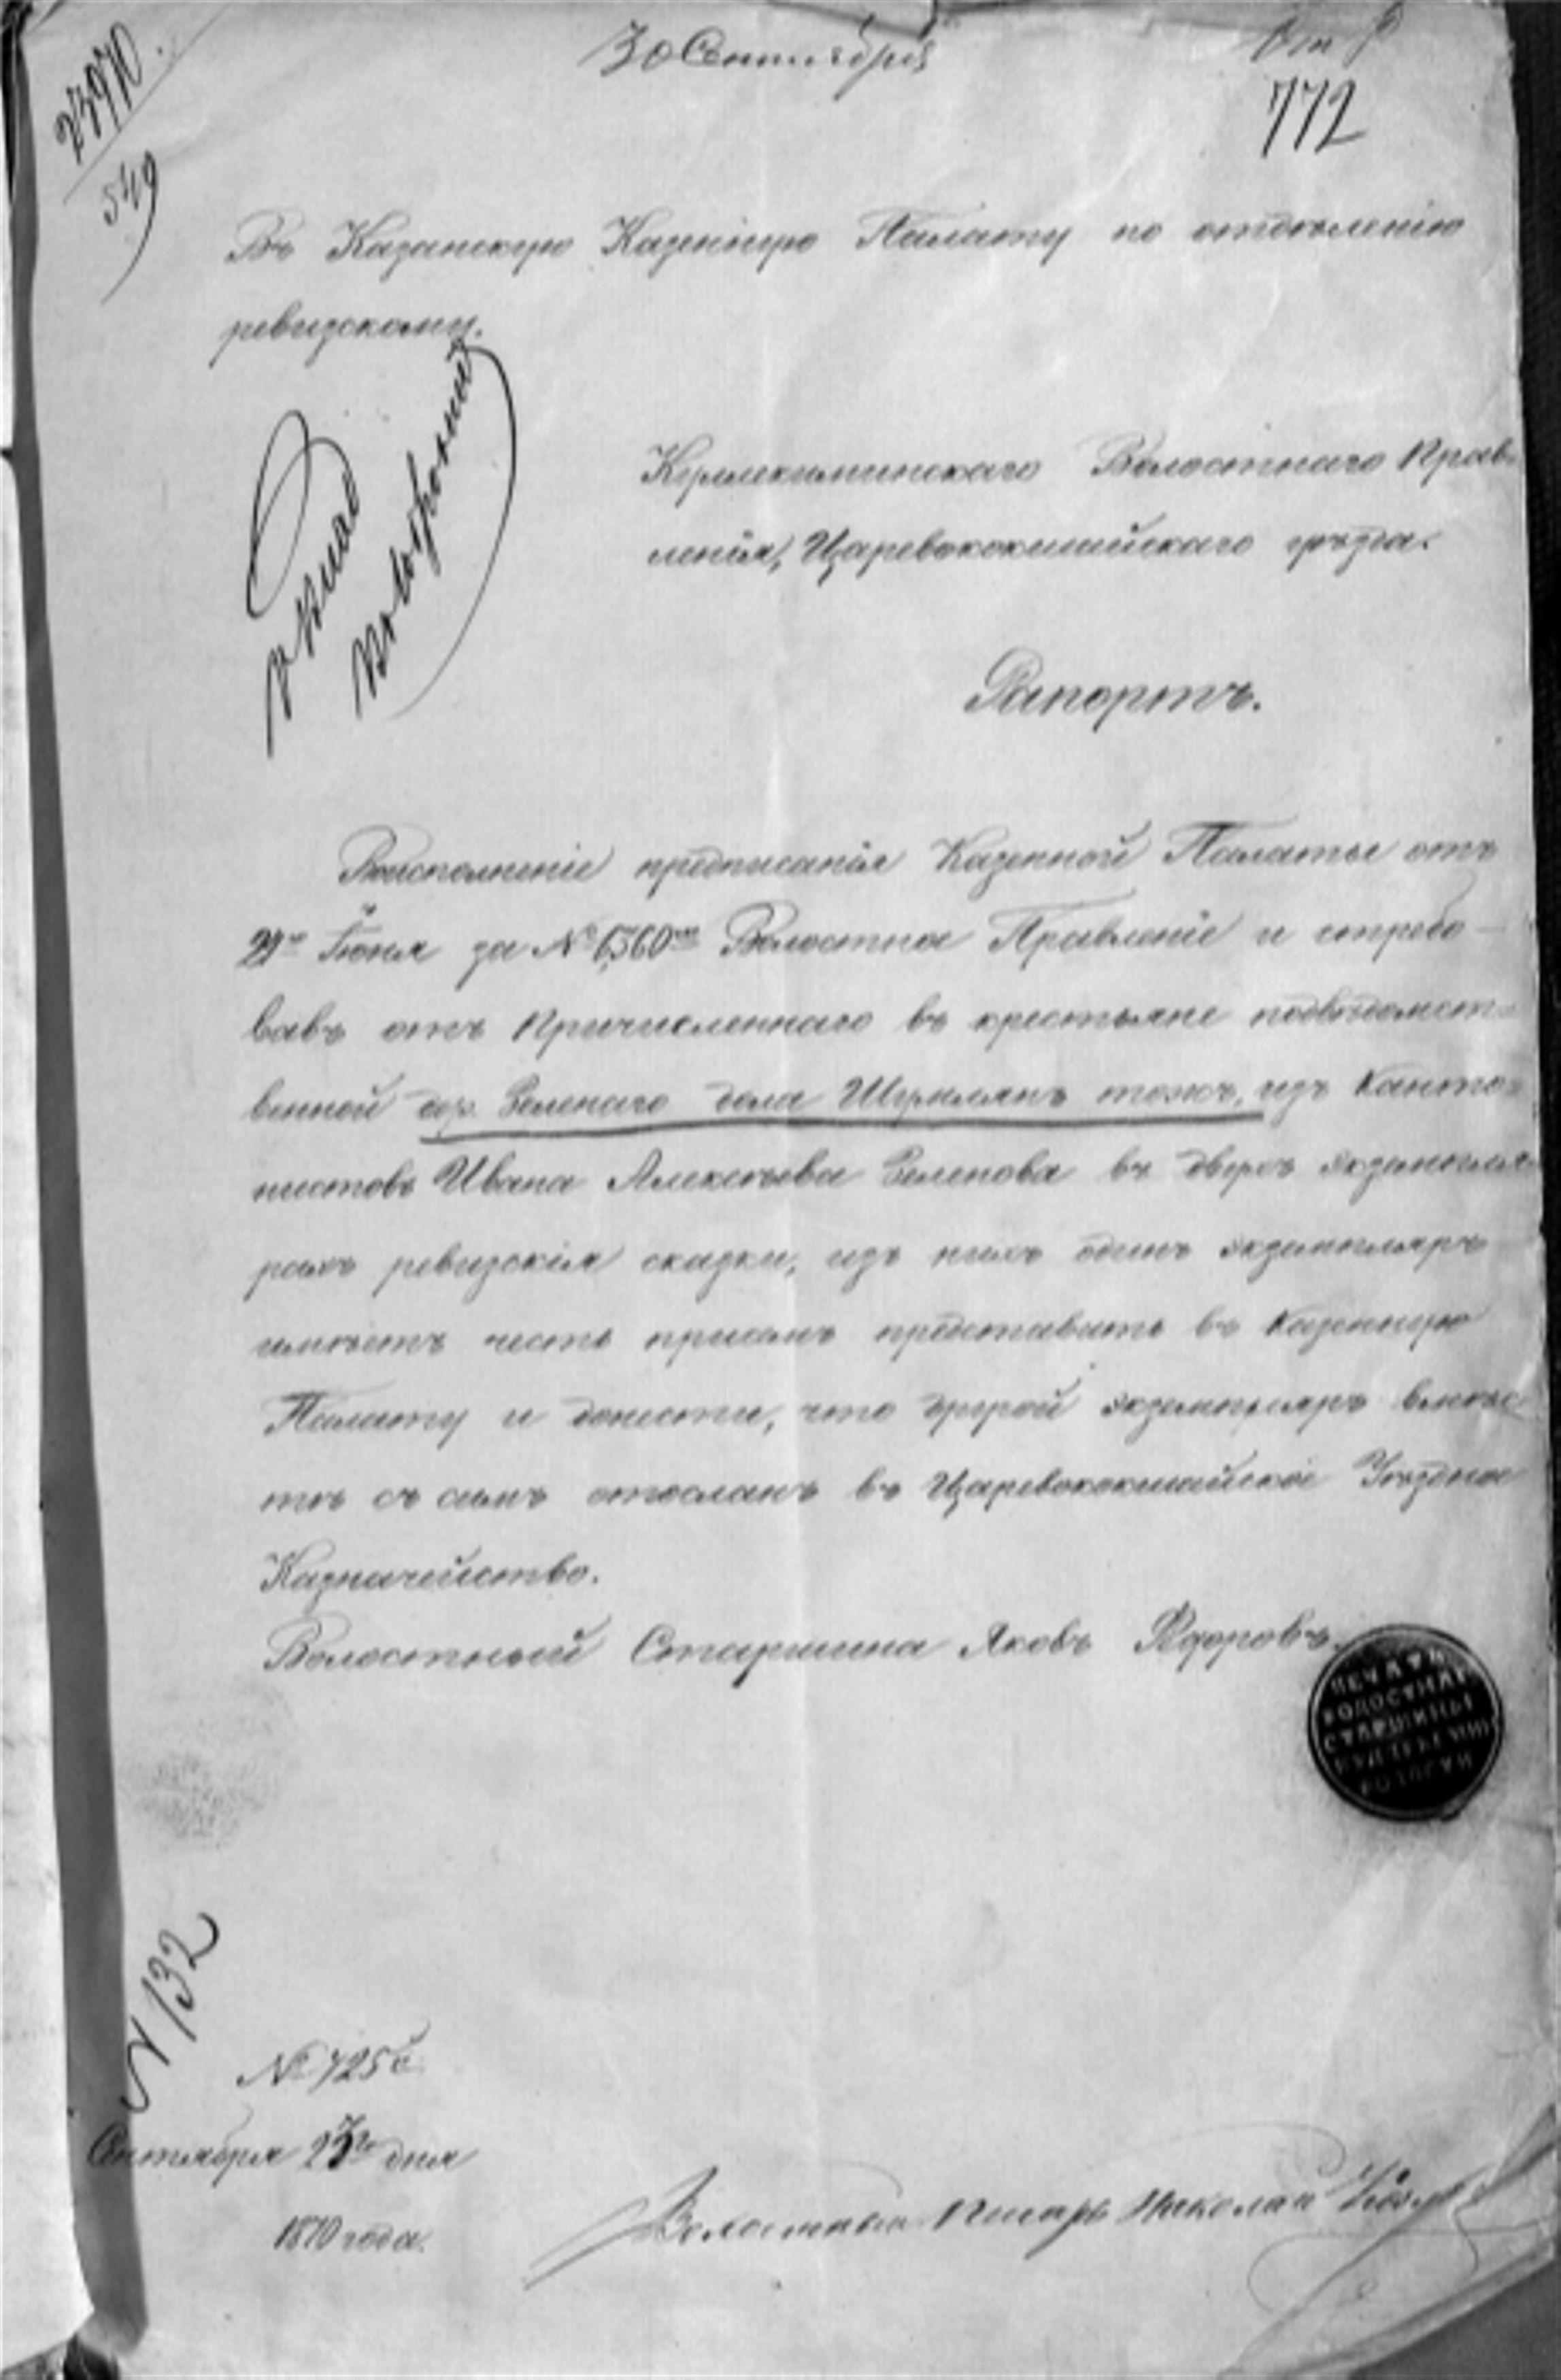 30 Сентября
772
23970.
549
Въ Казанскую Казенную Палату по отдѣленію
ревизскому.
Кермекиминскаго Волостнаго Прав-
ленія, Царевококшайскаго уѣзда.
Рапортъ.
Воисполненіе предписанія Казенной Палаты отъ
Іюня за № 6360 Волостное Правленіе и стребо-
вавъ отъ причисленнаго въ крестьяне подвѣдомст-
венной дер. Зеленаго дола Шумлянъ тожъ, изъ Канто-
нистовъ Ивана Алексѣева Зеленова въ двухъ экземпля-
рахъ ревизскія сказки, изъ нихъ одинъ экземпляръ
имѣетъ честь присемъ представить въ Казенную
Палату и донести, что другой экземпляръ вмѣс-
тѣ съ симъ отосланъ въ Царевококшайское Уѣздное
Казначейство.
Волостный Старшина Яковъ Ѳедоровъ.
ПЕЧАТЬ
ВОЛОСТНАГ
СТАРШИНЫ
N 132
№ 725
Сентября 23го дня
1870 года.
Волостный Писарь Николай